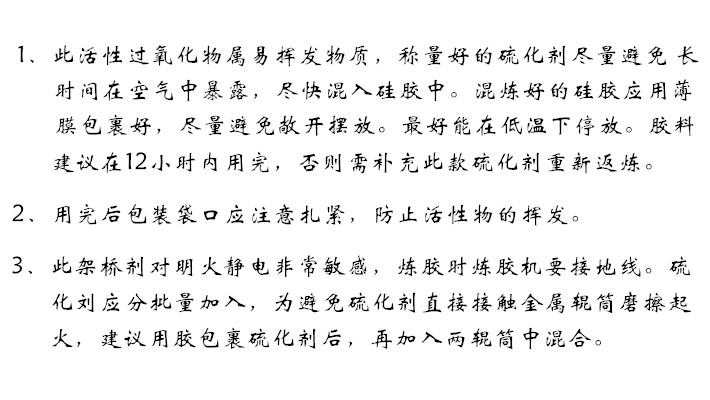 1、此活性过氧化物属易挥发物质，称量好的硫化剂尽量避免长
时间在空气中暴露，尽快混入硅胶中。混炼好的硅胶应用薄
膜包裹好，尽量避免敞开摆放。最好能在低温下停放。胶料
建议在12小时内用完，否则需补充此款硫化剂重新返炼。
2、用完后包装袋口应注意扎紧，防止活性物的挥发。
3、此架桥剂对明火静电非常敏感，炼胶时炼胶机要接地线。硫
化刘应分批量加入，为避免硫化剂直接接触金属辊筒磨擦起
火，建议用胶包裹硫化剂后，再加入两辊筒中混合。